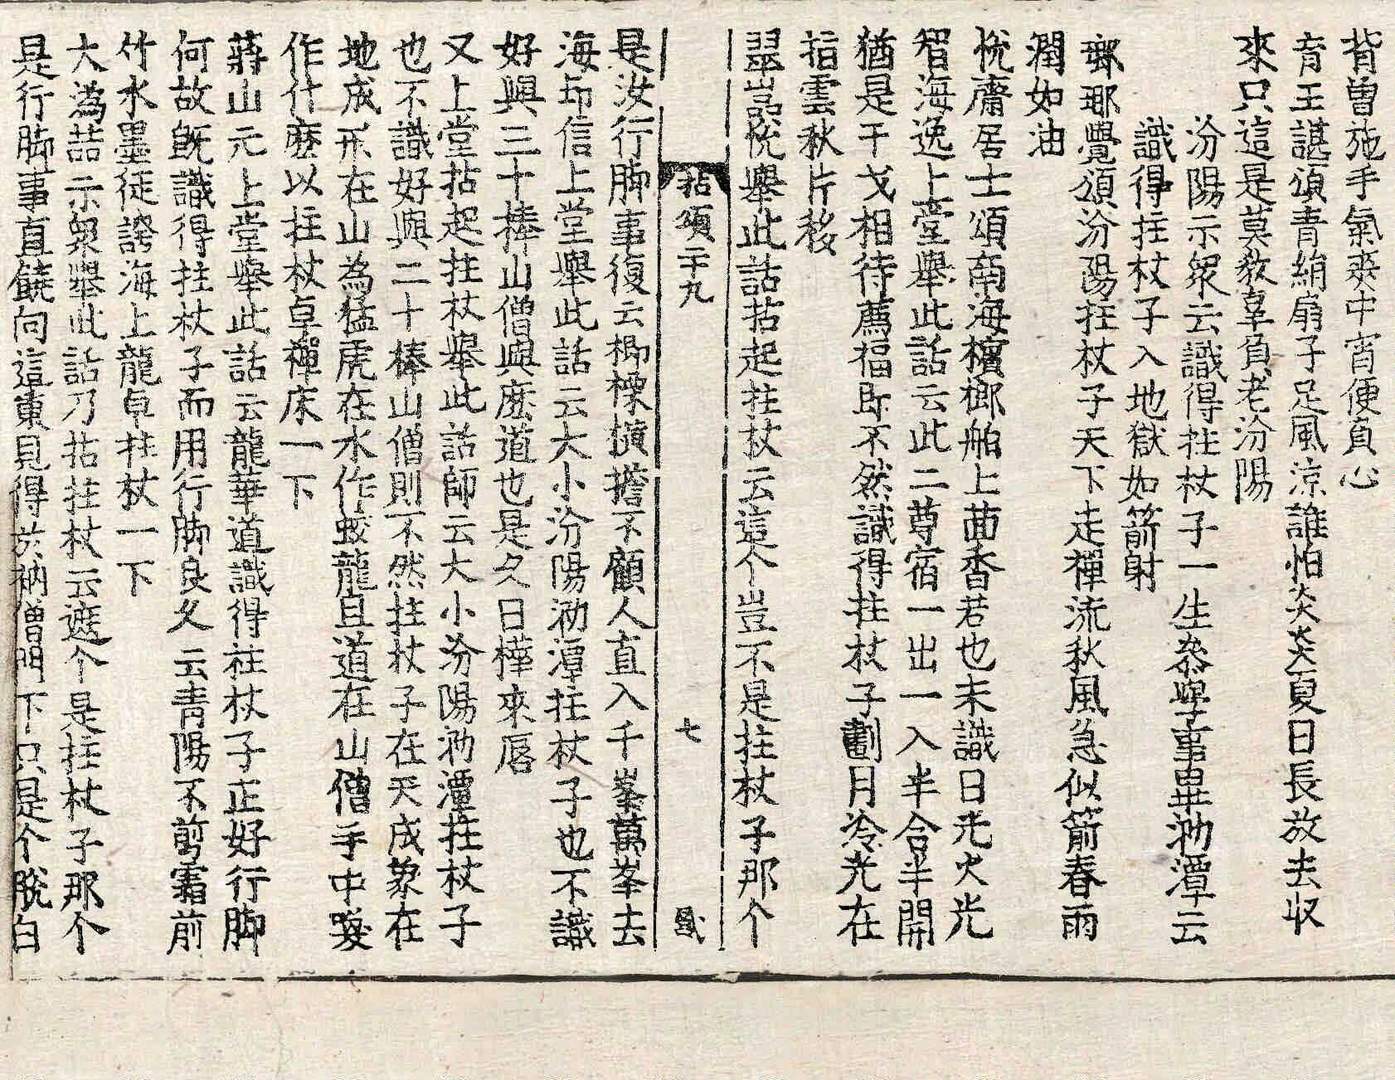 背曾施手氣英中宵便負心
育王諶頌青綃扇子足風涼誰怕炎炎夏日長放去収
來只這是莫教辜負老汾陽
汾陽示眾云識得拄杖子一生叅學事畢泐潭云
識得拄杖子入地獄如箭射
瑯瑘覺頌汾陽拄杖子天下走禪流秋風急似箭春雨
潤如油
悅齋居士頌南海檳榔舶上茴香若也未識日光火光
智海逸上堂舉此話云此二尊宿一出一入半合半開
猶是干戈相待薦福即不然識得拄杖子劃月冷光在
指雲秋片移
翠嵓悅舉此話拈起拄杖云這个豈不是拄杖子那个
拈頌二十九
七
是汝行脚事復云楖𣗖橫擔不顧人直入千峯萬峯去
海印信上堂舉此話云大小汾陽泐潭拄杖子也不識
好與三十棒山僧與麽道也是久日樺來唇
又上堂拈起拄杖舉此話師云大小汾陽泐潭拄杖子
也不識好與二十棒山僧則不然拄杖子在天成象在
地成形在山為猛虎在水作蛟龍且道在山僧手中喚
作什麽以拄杖卓禪床一下
蔣山元上堂舉此話云龍華道識得拄杖子正好行脚
何故旣識得拄杖子而用行脚良久云青陽不剪霜前
竹水墨徒誇海上龍卓拄杖一下
大潙喆示眾舉此話乃拈拄杖云遮个是拄杖子那个
是行脚事直饒向這裏見得於衲僧門下只是个脫白